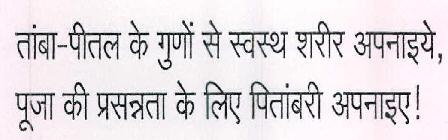 तांबा-पीतल के गुणों से स्वस्थ शरीर अपनाइये,
पूजा की प्रसन्नता के लिए पितांबरी अपनाइए!